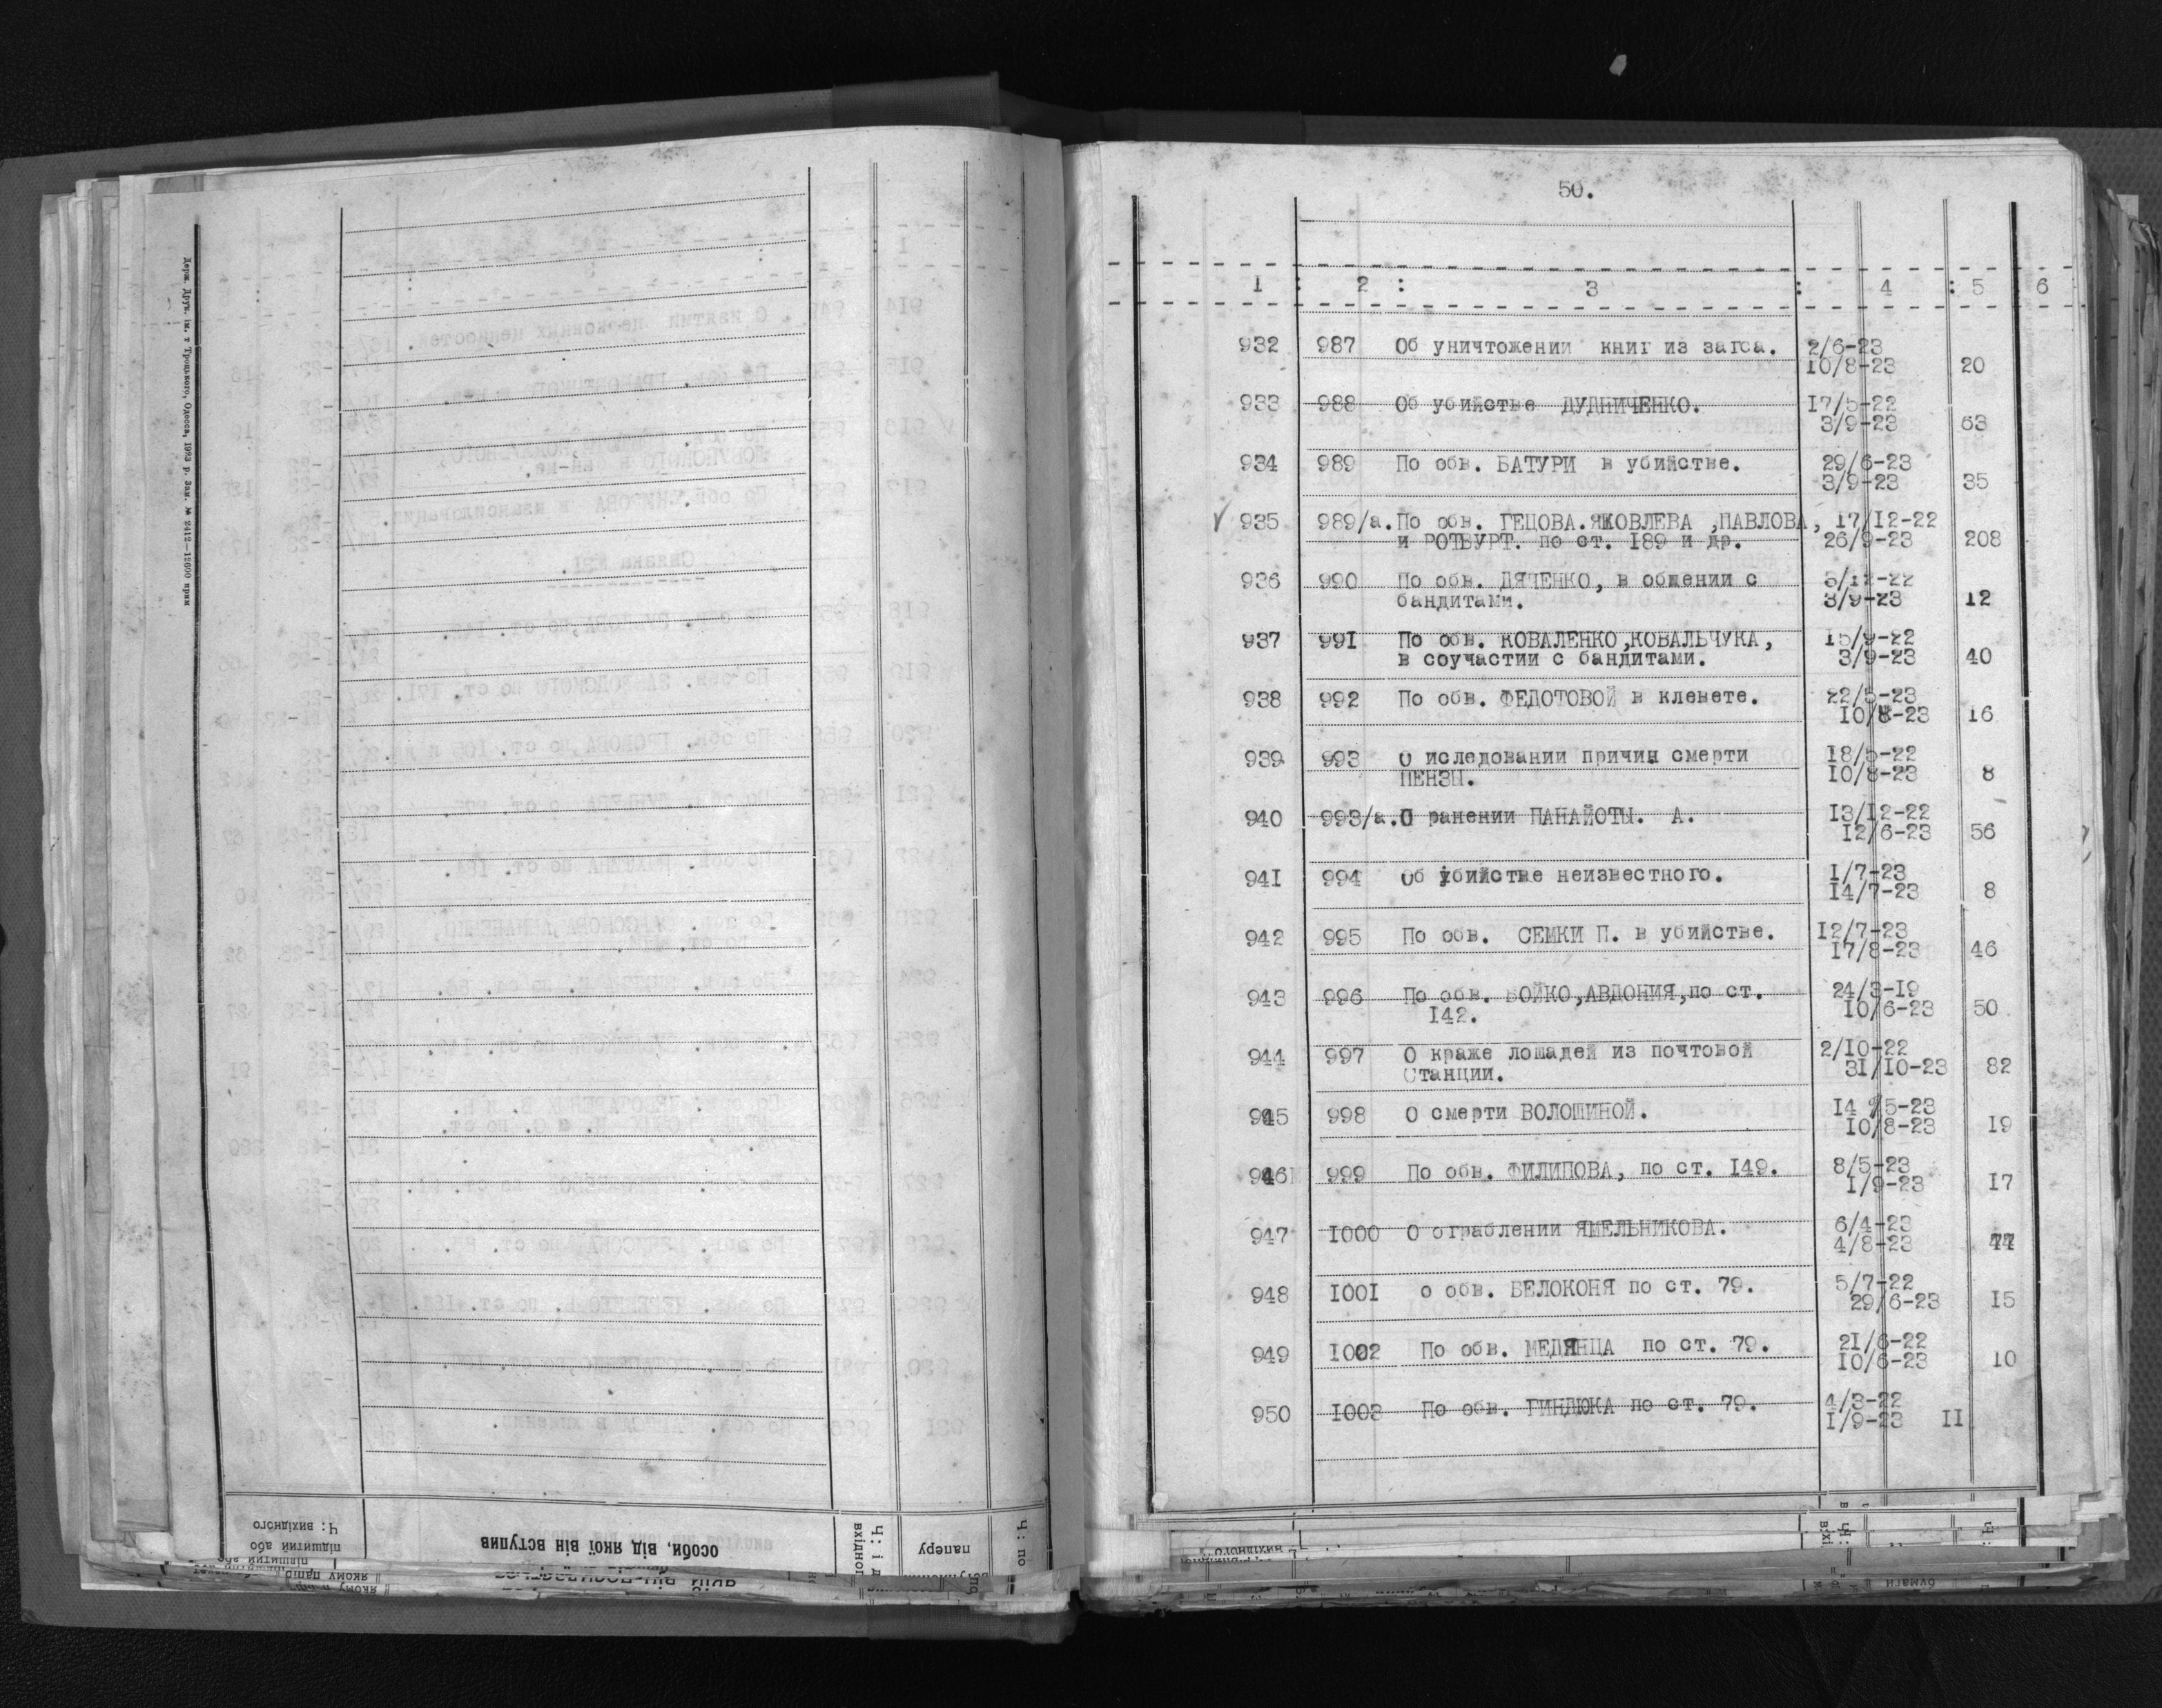 Держ. Друк. ім. т Троцького, Одесса, 1923 р. Зак. № 2412—12600 прим
Ч: вихідного
підшитий або
якому папір
особи, від якої він вступив
паперу
Ч: по
50.
1 : 2 : 3 : 4 : 5 6
932 987 Об уничтожении книг из загса. 2/6-23
10/8-23 20
933 988 Об убийстве ДУДНИЧЕНКО. 17/5-22
3/9-23 63
934 989 По обв. БАТУРИ в убийстве. 29/6-23
3/9-23 35
√ 935 989/а. По обв. ГЕЦОВА.ЯКОВЛЕВА ,ПАВЛОВА, 17/12-22
и РОТБУРТ. по ст. 189 и др. 26/9-23 208
936 990 По обв. ДЯЧЕНКО, в общении с 5/12-22
бандитами. 3/9-23 12
937 991 По обв. КОВАЛЕНКО,КОВАЛЬЧУКА, 15/9-22
в соучастии с бандитами. 3/9-23 40
938 992 По обв. ФЕДОТОВОЙ в клевете. 22/5-23
10/8-23 16
939 993 О иследовании причин смерти 18/5-22
ПЕНЗЫ. 10/8-23 8
940 993/а. О ранении ПАНАЙОТЫ. А. 13/12-22
12/6-23 56
941 994 Об убийстве неизвестного. 1/7-23
14/7-23 8
942 995 По обв. СЕМКИ П. в убийстве. 12/7-23
17/8-23 46
943 996 По обв. БОЙКО,АВДОНИЯ,по ст. 24/3-19
142. 10/6-23 50
944 997 О краже лошадей из почтовой 2/10-22
Станции. 31/10-23 82
945 998 О смерти ВОЛОШИНОЙ. 14 /5-23
10/8-23 19
946 999 По обв. ФИЛИПОВА, по ст. 149. 8/5-23
1/9-23 17
947 1000 О ограблении ЯМЕЛЬНИКОВА. 6/4-23
4/8-23
948 1001 о обв. БЕЛОКОНЯ по ст. 79. 5/7-22
29/6-23 15
949 1002 По обв. МЕДЯНЦА по ст. 79. 21/6-22
10/6-23 10
950 1003 По обв. ГИНДЮКА по ст. 79. 4/3-22
1/9-23 11